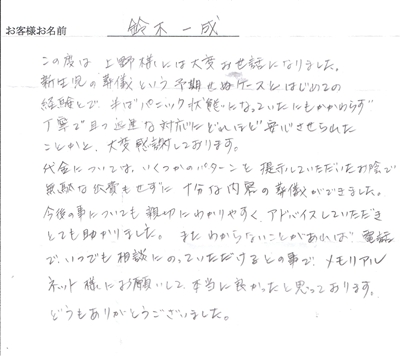 お客様お名前 鈴木一成
この度は上野様には大変お世話になりました。
新生児の葬儀という予期せぬケースとはじめての
経験とで、半ばパニック状態になっていたにもかかわらず
丁寧で且つ迅速な対応にどれほど安心させられた
ことかと、大変感謝しております。
代金については、いくつかのパターンを提示していただいたお陰で
無駄な浪費もせずに十分な内容の葬儀ができました。
今後の事についても親切にわかりやすく、アドバイスしていただき
とても助かりました。またわからないことがあれば電話
で、いつでも相談にのっていただけるとの事で、メモリアル
ネット様にお願いして本当に良かったと思っております。
どうもありがとうございました。